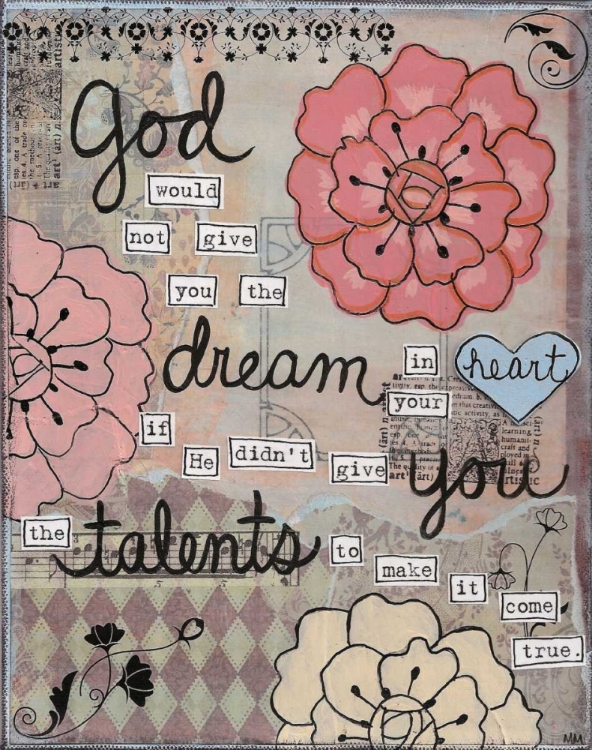 God
would
not give
you the
dream in your heart
if He didn't give you
the talents to make it come
true.
MM